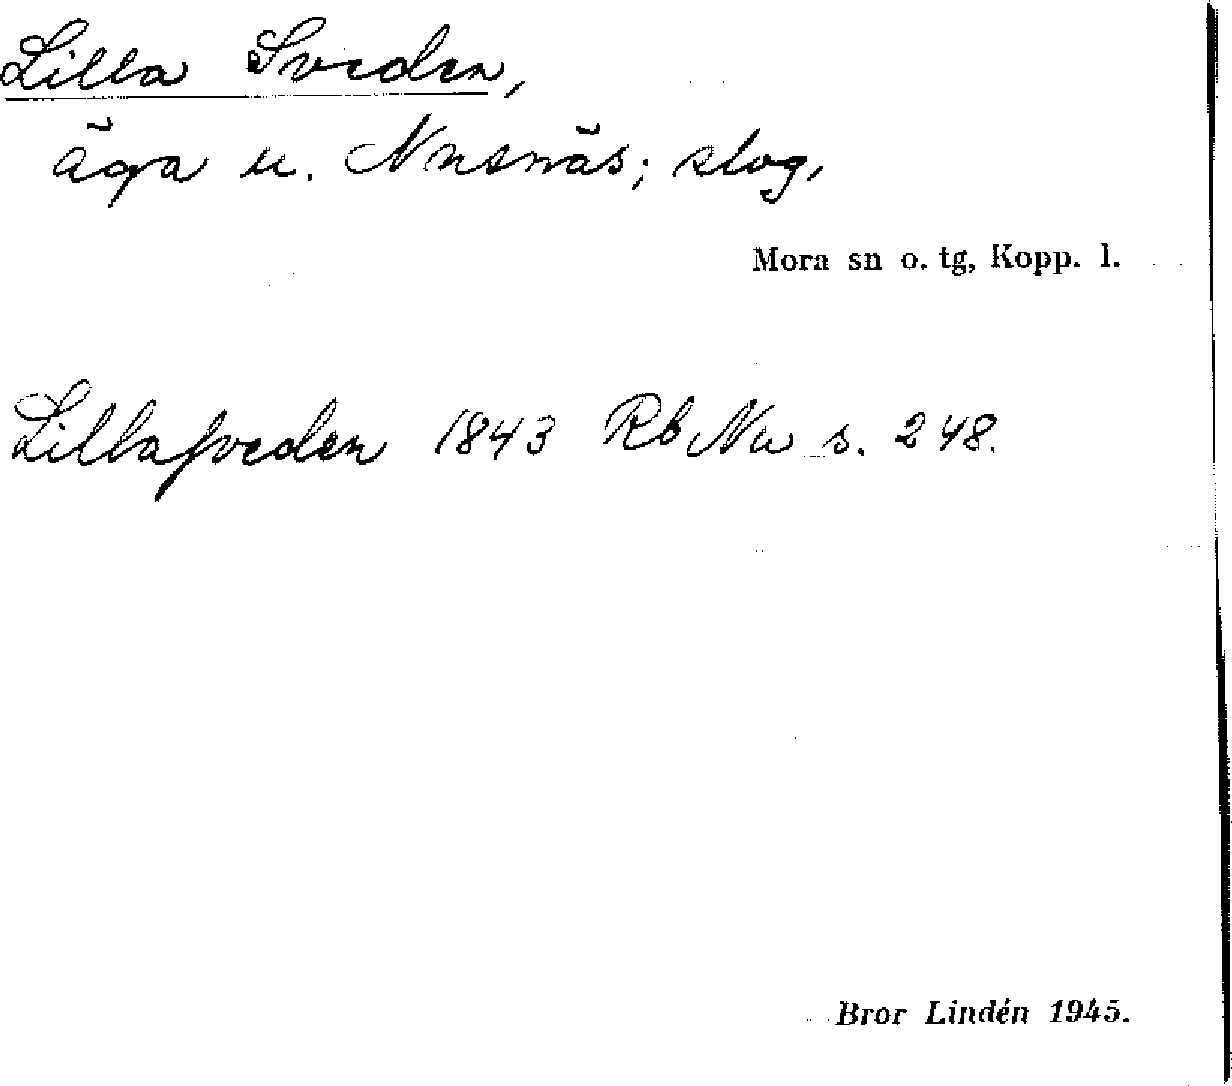 Lilla Sveden,
äga u. Nusnäs; slog,
Mora sn o. tg, Kopp. l.
Lillasveden 1843 Rb Nu s. 248.
Bror Lindén 1945.